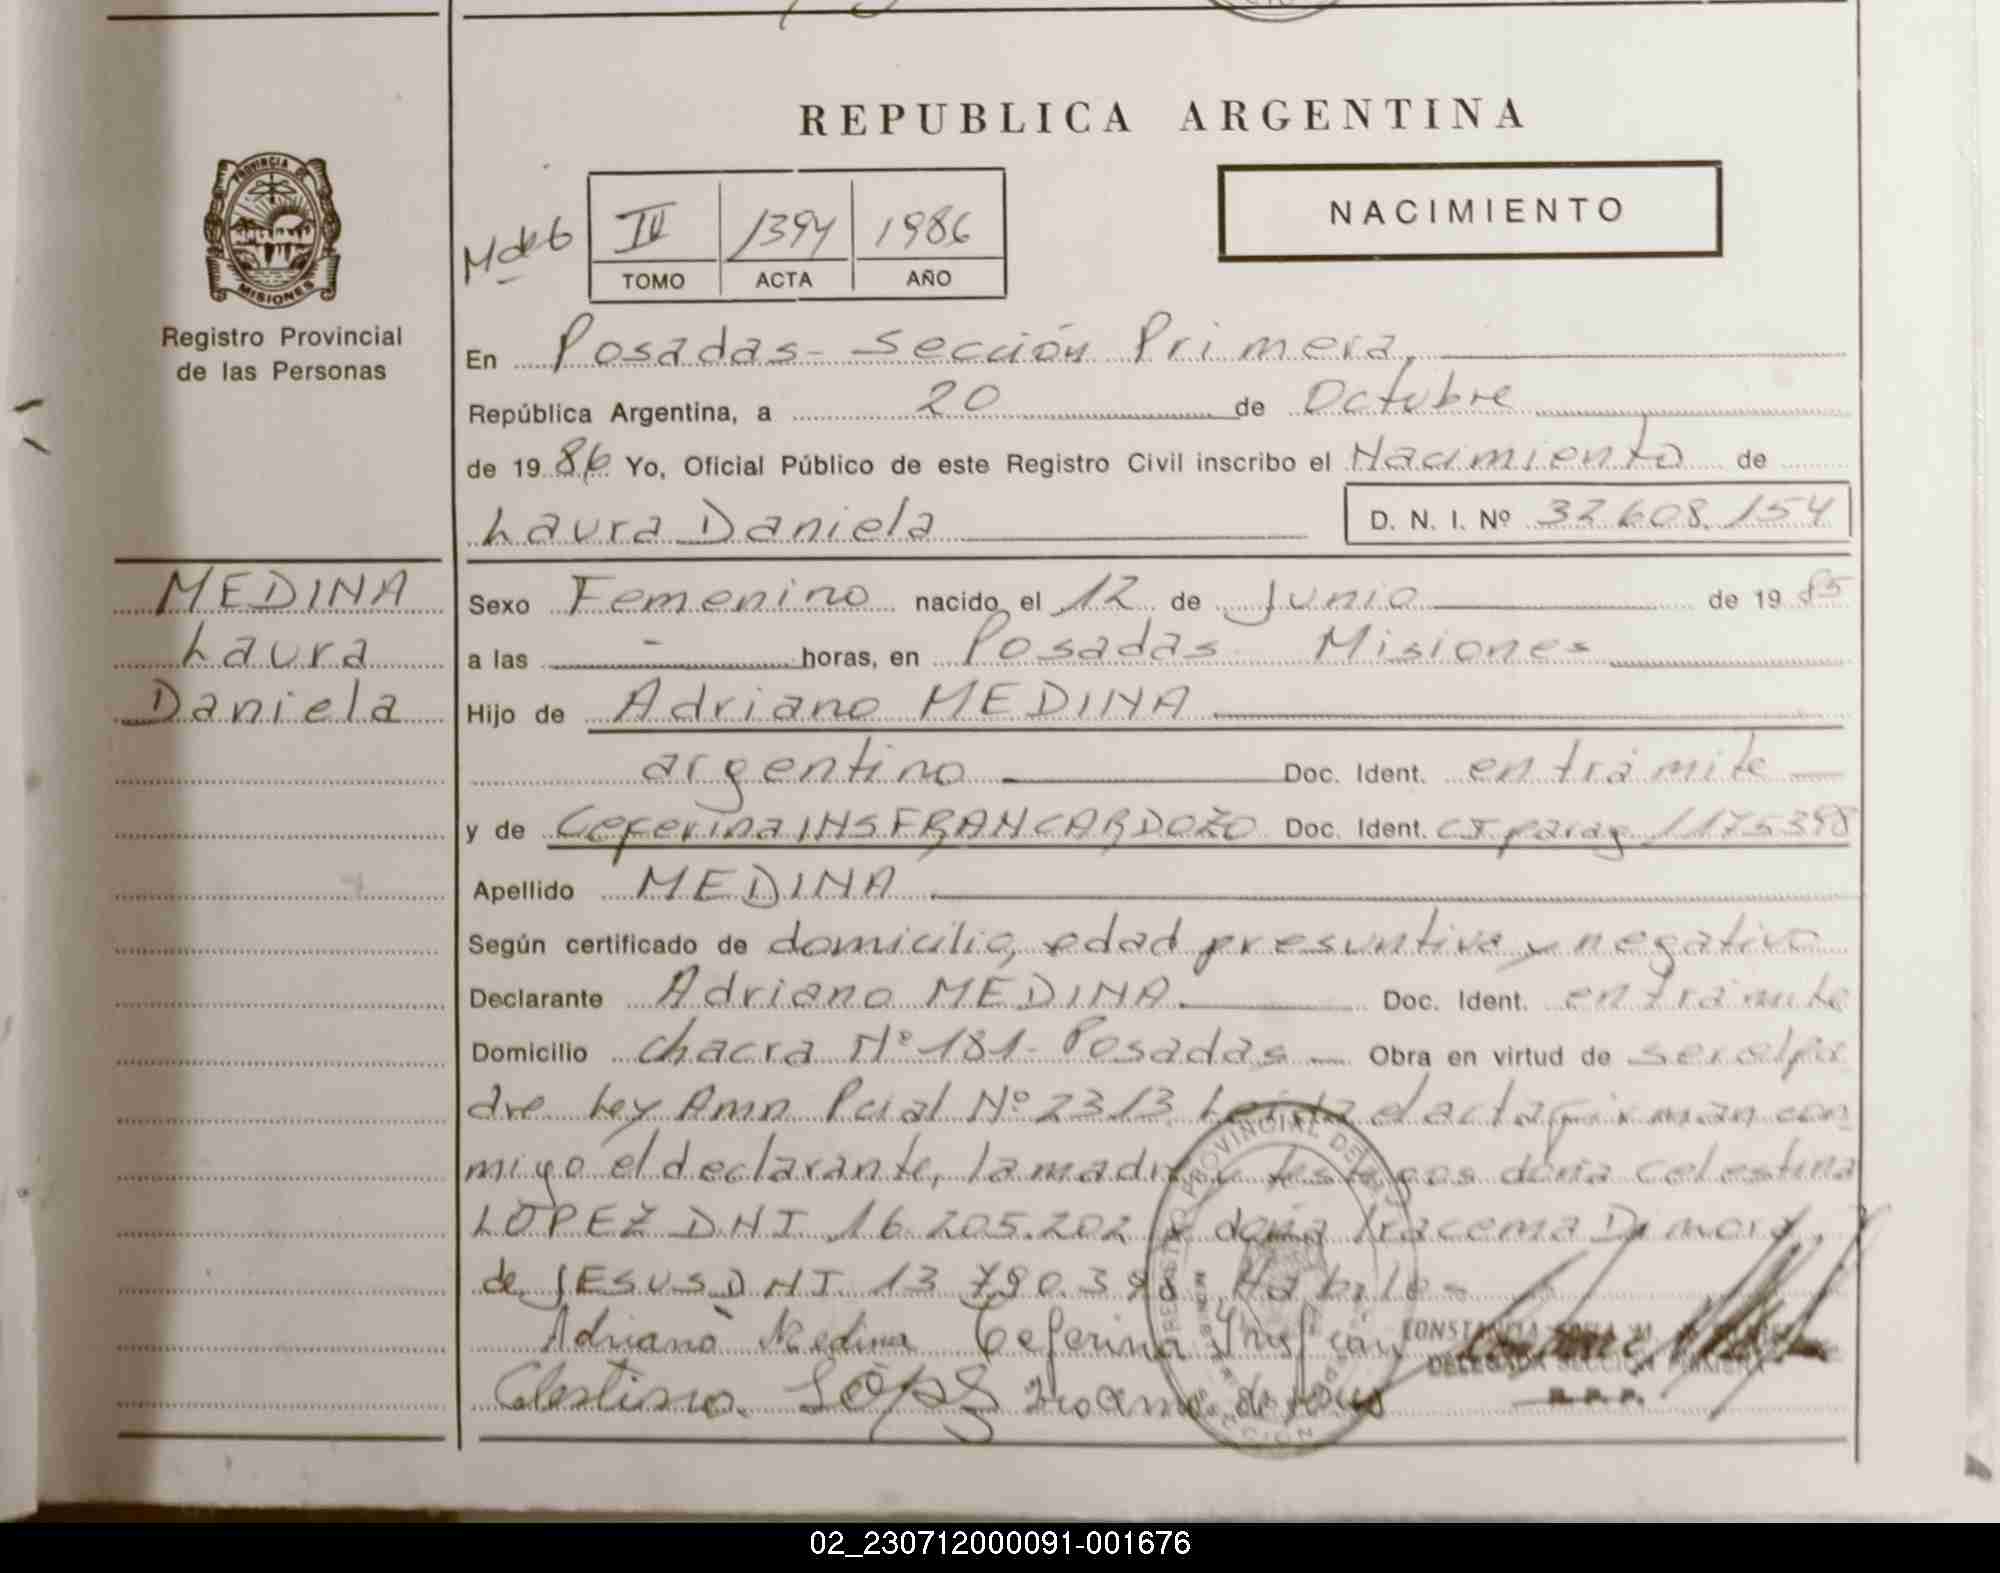 REPUBLICA ARGENTINA
PROVINCIA DE
MISIONES
Registro Provincial
de las Personas
NACIMIENTO
IV 1394 1986
TOMO ACTA AÑO
En Posadas - Sección Primera,
República Argentina, a 20 de Octubre
de 1986 Yo, Oficial Público de este Registro Civil inscribo el Nacimiento de
Laura Daniela D. N. I. Nº 32.608.154
MEDINA
Laura
Daniela
Sexo Femenino nacido el 12 de Junio de 1985
a las - horas, en Posadas Misiones
Hijo de Adriano MEDINA
argentino Doc. Ident. en trámite
y de Ceferina INSFRAN CARDOZO Doc. Ident. C.I. parag. 1175398
Apellido MEDINA
Según certificado de domicilio, edad presuntiva y negativo
Declarante Adriano MEDINA. Doc. Ident. en trámite
Domicilio chacra Nº 181 - Posadas Obra en virtud de ser el pa
dre Ley Amn Pcial Nº 2313. Leída el acta firman con
migo el declarante, la madre y testigos doña Celestina
LÓPEZ DNI 16.205.202 y doña Iracema
de JESUS DNI 13.790.398. Hábiles
Adriano Medina Ceferina Insfrán
Celestina López de Jesus
DELEGADA SECCION PRIMERA
R. P. P.
02_230712000091-001676